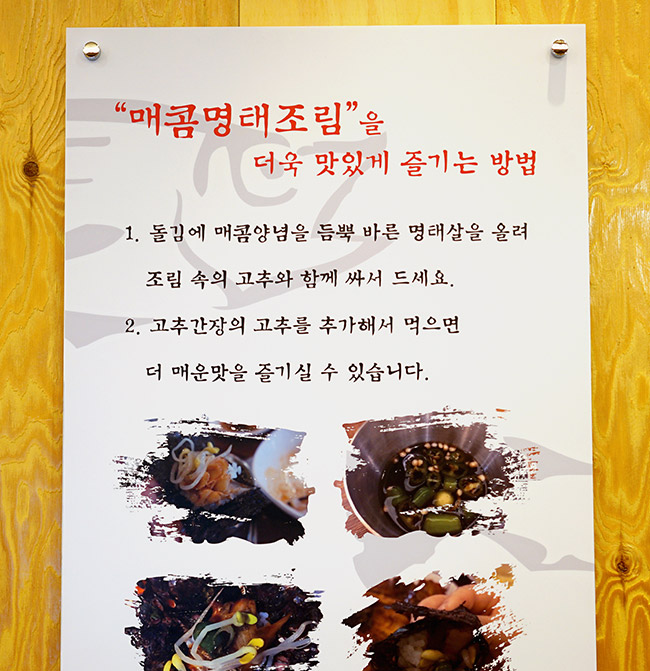 “매콤명태조림”을
더욱 맛있게 즐기는 방법
1. 돌김에 매콤양념을 듬뿍 바른 명태살을 올려
조림 속의 고추와 함께 싸서 드세요.
2. 고추간장의 고추를 추가해서 먹으면
더 매운맛을 즐기실 수 있습니다.